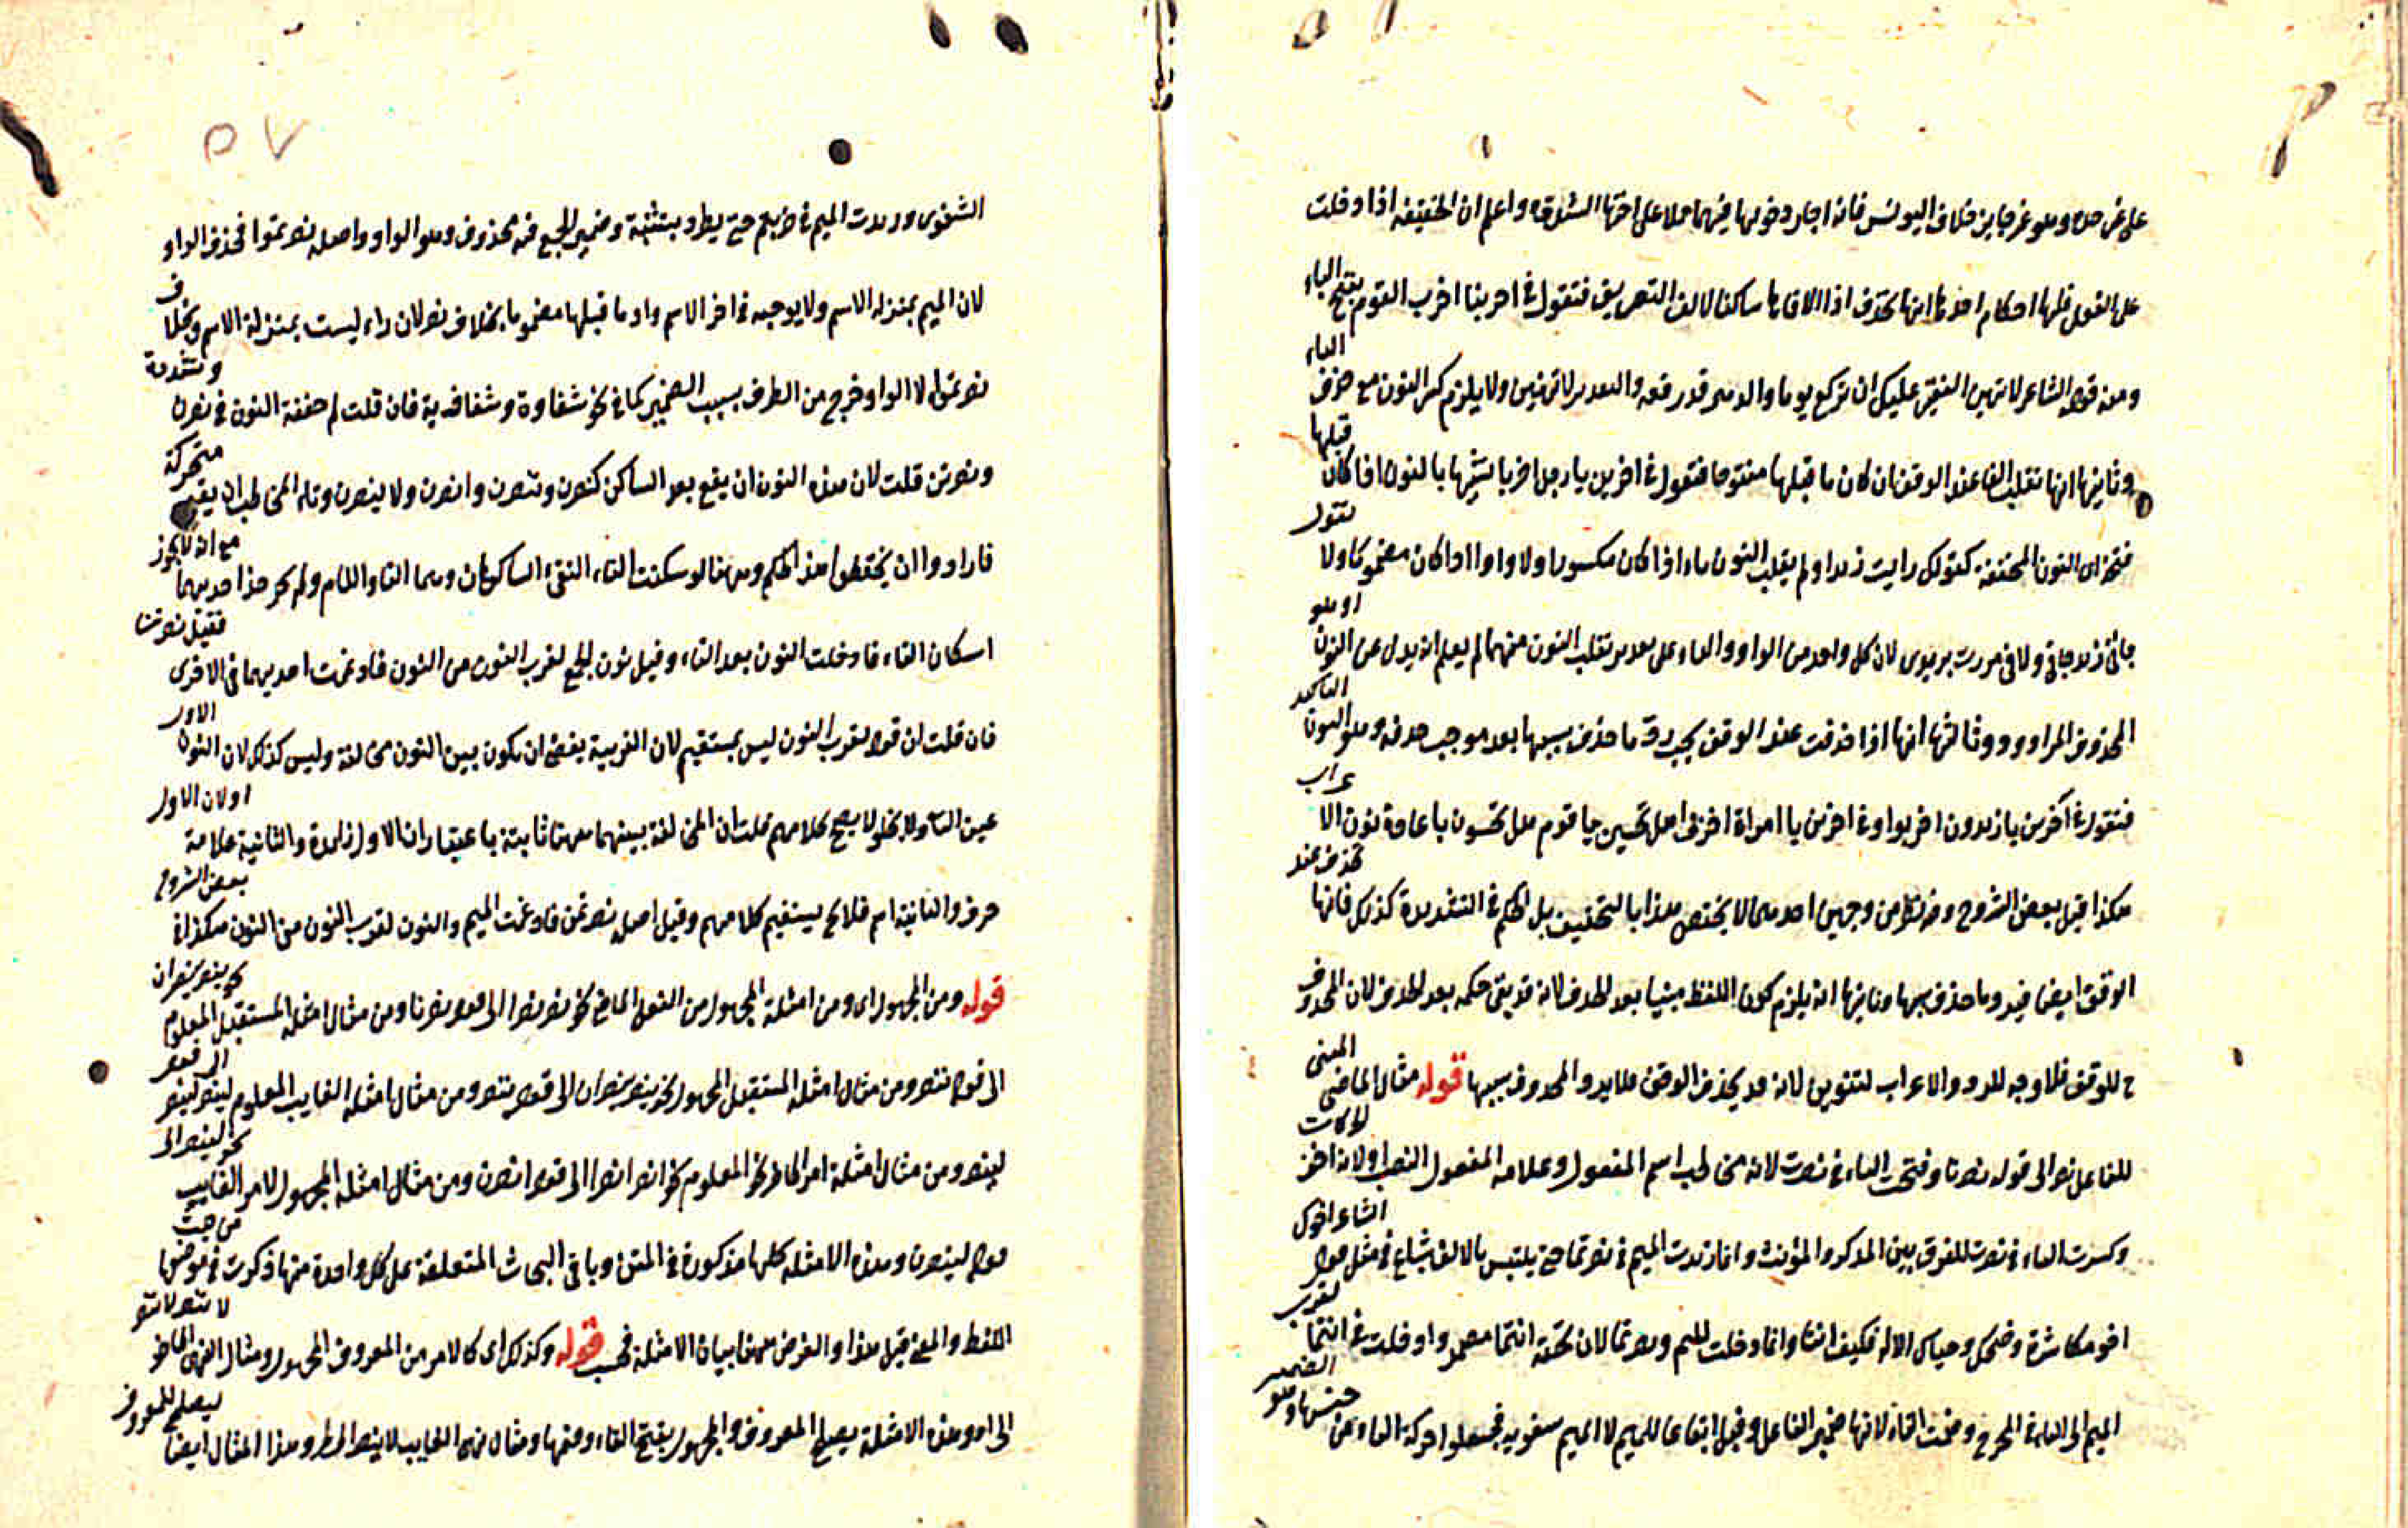 على غير حده وهو غير جايز خلاف اليونس فانه اجاز دخولها فيهما حملا على اختها الثقيلة واعلم ان الخفيفه اذا دخلت
على الفعل فلها احكام احدها انها تحذف اذا لاقاها ساكنا لالف التصريف فتقول في اضربنا اضرب القوم بفتح الباء
ومنه قول الشاعر لا تهين الفقير عليك ان تركع يوما والدهر قد رفعه والتقدير لا تهينن ولا يلزم كسر النون مع حذف الياء
وثانيها انها تقلب الفا عند الوقف ان كان ما قبلها مفتوحا فتقول في اضربن يا رجل اضربا تشبيها بالنون اذا كان قبلها
فتحة اي النون المخففة كقولك رايت زيدا ولم يقلب النون ياء اذا كان مكسورا ولا واوا اذا كان مضموما ولا تقول
جائني زيدو ولا في مررت بزيدي لان كل واحد من الواو والياء على تقدير تقلب النون منهما لم يعلم انه بدل عن النون او هو
المحذوف المراد وثالثها انها اذا حذفت عند الوقف يجب رد ما حذف بسببها بعد موجب حذفه وهو النون التاكيد
فتقول في اضربن يا زيدون اضربوا وفي اضربن يا امراة اضربي هل تحسين يا قوم هل تحسبون باعادة نون الاعراب
هكذا قيل بعض الشروح وفيه نظر من وجهين احدهما لا يختص هذا بالتخفيف بل الحكم في التشديدة كذلك فانها تحذف عند
الوقف ايضا فيرد ما حذف بها وثانيها انه يلزم كون اللفظ مبنيا بعد الحذف لانه قد بقى حكمه بعد الحذف لان المحذوف
ح للوقف فلا وجه للرد والاعراب للتنوين لانه قد يحذف الوقف فلا يرد المحذوف بسببها قوله مثال الماضي المبنى
للفاعل نصر الى قوله نصرنا وفتحت التاء في نصرت لانه مخاطب اسم المفعول وعلامة المفعول النصب ولانه اخف الحركات
وكسرت التاء في نصرت للفرق بين المذكر والمؤنث وانما زيدت الميم في نصرتما حتى يلتبس بالالف اشباع في مثل قول الشاعر اخوك
اخو مكاشرة وضحك وحياك الاله فكيف انتا وانما دخلت الميم في نصرتما لان تحته انتما مضمر وادخلت في انتما لقرب
الميم الى التاء في المخرج وضمت التاء لانها ضمير الفاعل وقيل اتباعا للميم لان الميم شفوية فجعلوا حركة التاء من جنسها وهو الضمير
الشفوى وزيدت الميم في ضربتم حتى يطرد بتثنية وضمير الجمع فيه محذوف وهو الواو واصله نصرتموا فحذف الواو
لان الميم بمنزلة الاسم ولا يوجد في اخر الاسم واو ما قبلها مضموما بخلاف نصروا لان راءه ليست بمنزلة الاسم وبخلاف
نصرتموه لان الواو خرج من الطرف بسبب الضمير كما في نحو شقاوة وشقاية فان قلت لم خففت النون في نصرن وشددت
ونصرتن قلت لان هذه النون ان يقع بعد الساكن كنصرن وتنصرن وانصرن ولا ينصرن وتاء المخاطب ان يقع متحركة
فارادوا ان يحفظوا هذا الحكم وههنا لو سكنت التاء التقى الساكنان وهما التاء واللام ولم يجز حذف احدهما مع انه لا يجوز
اسكان التاء فادخلت النون بعد التاء وقيل نون الجمع لقرب النون من النون فادغمت احديهما في الاخرى فقيل نصرتن
فان قلت ان قوله لقرب النون ليس بمستقيم لان القربية يقتضى ان يكون بين النون مخالفة وليس كذلك لان النون الاول
عين الثانى ولا يصح كلامهم قلت ان المخالفة بينهما ههنا ثابتة باعتبار ان الاول زائدة والثانية علامة او لان الاول
حرف والثانية اسم فلا يستقيم كلامهم وقيل اصله نصرتمن فادغمت الميم والنون لقرب النون من النون هكذا في بعض الشروح
قوله ومن المجهول اى ومن امثلة المجهول من الفعل الماضى نحو نصر نصرا الى قوله نصرنا ومن مثال امثلة المستقبل المعلوم نحو ينصر ينصران
الى قوله ننصر ومن مثال امثلة المستقبل المجهول نحو ينصر ينصران الى قوله ننصر ومن مثال امثلة الغايب المعلوم لينصر لينصرا الى قوله
لينصر ومن مثال امثلة امر الحاضر نحو المعلوم نحو انصر انصرا الى قوله انصرن ومن مثال امثلة المجهول لامر الغايب نحو لينصر الى
قوله لينصرن وهذه الامثلة كلها مذكورة في المتن وباقى البحاث المتعلقة على كل واحدة منها ذكرت في موضعها من حيث
اللفظ والمعنى قيل هذا والغرض ههنا بيان الامثلة فحسب قوله وكذلك اى كالامر من المعروف والمجهول ومثال النهى الحاضر لا تنصر لا تنصرا
الى اخره وهذه الامثلة يصلح المعروف والمجهول بفتح التاء وضمها ومثال نهى الغايب لا ينصر الى اخره وهذا المثال ايضا يصلح للمعروف